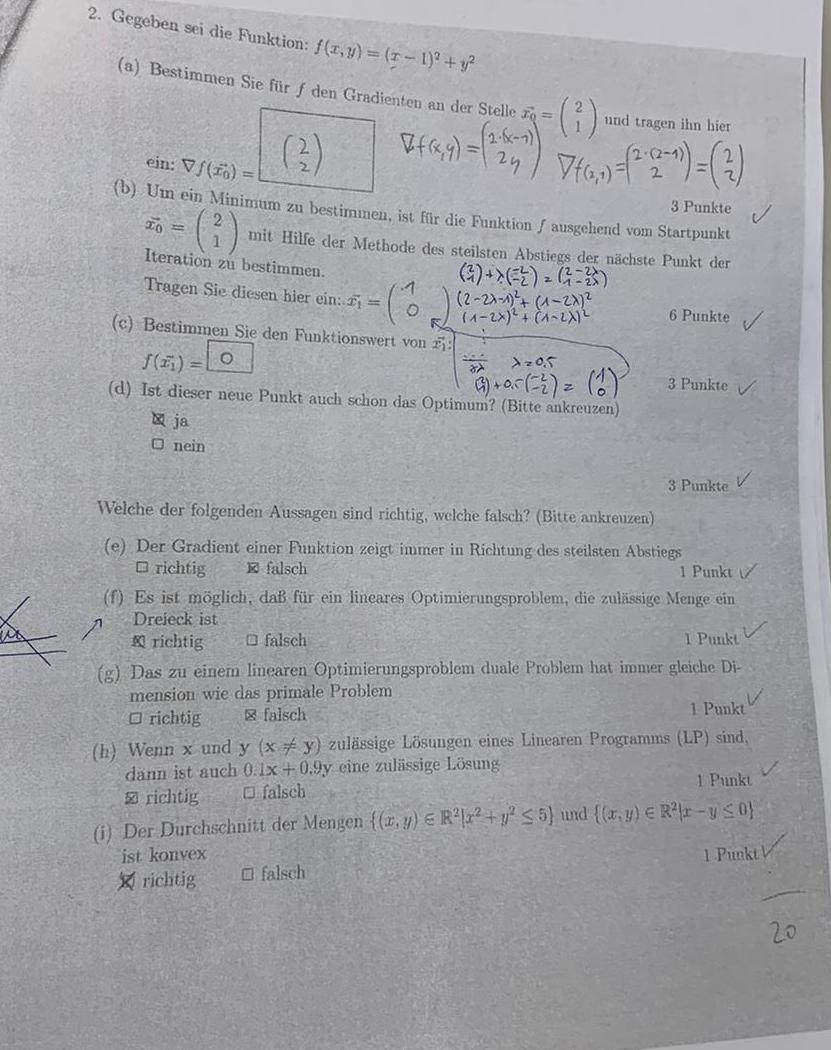 2. Gegeben sei die Funktion: f(x, y) = (x − 1)² + y²
(a) Bestimmen Sie für f den Gradienten an der Stelle x⃗₀ = (2 1) und tragen ihn hier
ein: ∇f(x⃗₀) = (2 2)
∇f(x,y) = (2·(x−1) 2y) ∇f(2,1) = (2·(2−1) 2) = (2 2)
3 Punkte ✓
(b) Um ein Minimum zu bestimmen, ist für die Funktion f ausgehend vom Startpunkt
x⃗₀ = (2 1) mit Hilfe der Methode des steilsten Abstiegs der nächste Punkt der
Iteration zu bestimmen.
(2 1) + λ(−2 −2) = (2−2λ 1−2λ)
Tragen Sie diesen hier ein: x⃗₁ = (1 0)
(2−2λ−1)² + (1−2λ)²
(1−2λ)² + (1−2λ)²
6 Punkte ✓
(c) Bestimmen Sie den Funktionswert von x⃗₁:
f(x⃗₁) = 0
λ = 0,5
(2 1) + 0,5(−2 −2) = (1 0)
3 Punkte ✓
(d) Ist dieser neue Punkt auch schon das Optimum? (Bitte ankreuzen)
☒ ja
☐ nein
3 Punkte ✓
Welche der folgenden Aussagen sind richtig, welche falsch? (Bitte ankreuzen)
(e) Der Gradient einer Funktion zeigt immer in Richtung des steilsten Abstiegs
☐ richtig ☒ falsch
1 Punkt ✓
(f) Es ist möglich, daß für ein lineares Optimierungsproblem, die zulässige Menge ein
Dreieck ist
☒ richtig ☐ falsch
1 Punkt ✓
(g) Das zu einem linearen Optimierungsproblem duale Problem hat immer gleiche Di-
mension wie das primale Problem
☐ richtig ☒ falsch
1 Punkt ✓
(h) Wenn x und y (x ≠ y) zulässige Lösungen eines Linearen Programms (LP) sind,
dann ist auch 0.1x + 0,9y eine zulässige Lösung
☒ richtig ☐ falsch
1 Punkt ✓
(i) Der Durchschnitt der Mengen {(x, y) ∈ ℝ²|x² + y² ≤ 5} und {(x, y) ∈ ℝ²|x − y ≤ 0}
ist konvex
☒ richtig ☐ falsch
1 Punkt ✓
20